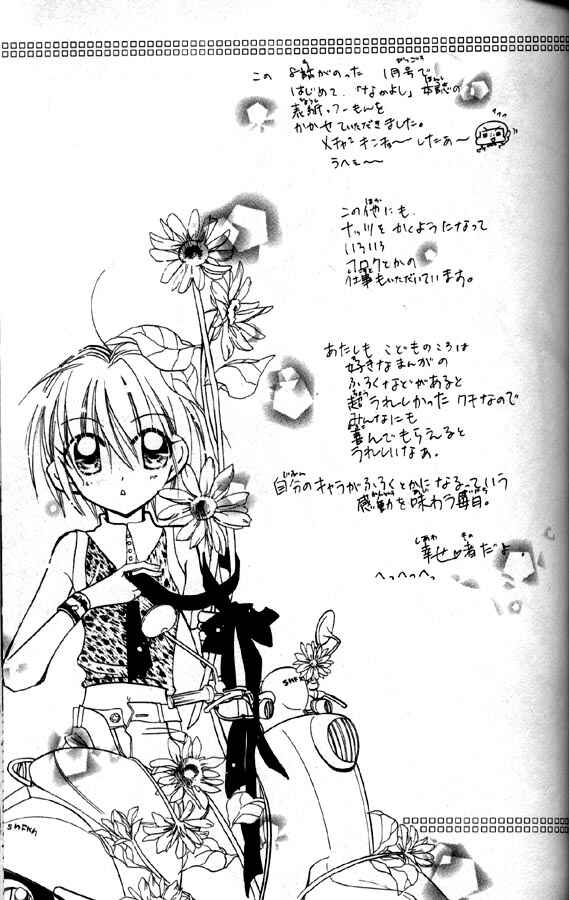 この 8話がのった 1月号で
はじめて、「なかよし」本誌の
表紙っつーもんを
かかせていただきました。
メチャ キンチョーしたあ〜
うへぇ〜〜
この他にも、
ナッツをかくようになって
いろいろ
フロクとかの
仕事もいただいています。
あたしも こどものころは
好きなまんがの
ふろくなどがあると
超うれしかったクチなので
みんなにも
喜んでもらえると
うれしいなぁ。
自分のキャラがふろくとかになるっていう
感動を味わう毎日。
幸せ者だよ
へっへっへっ